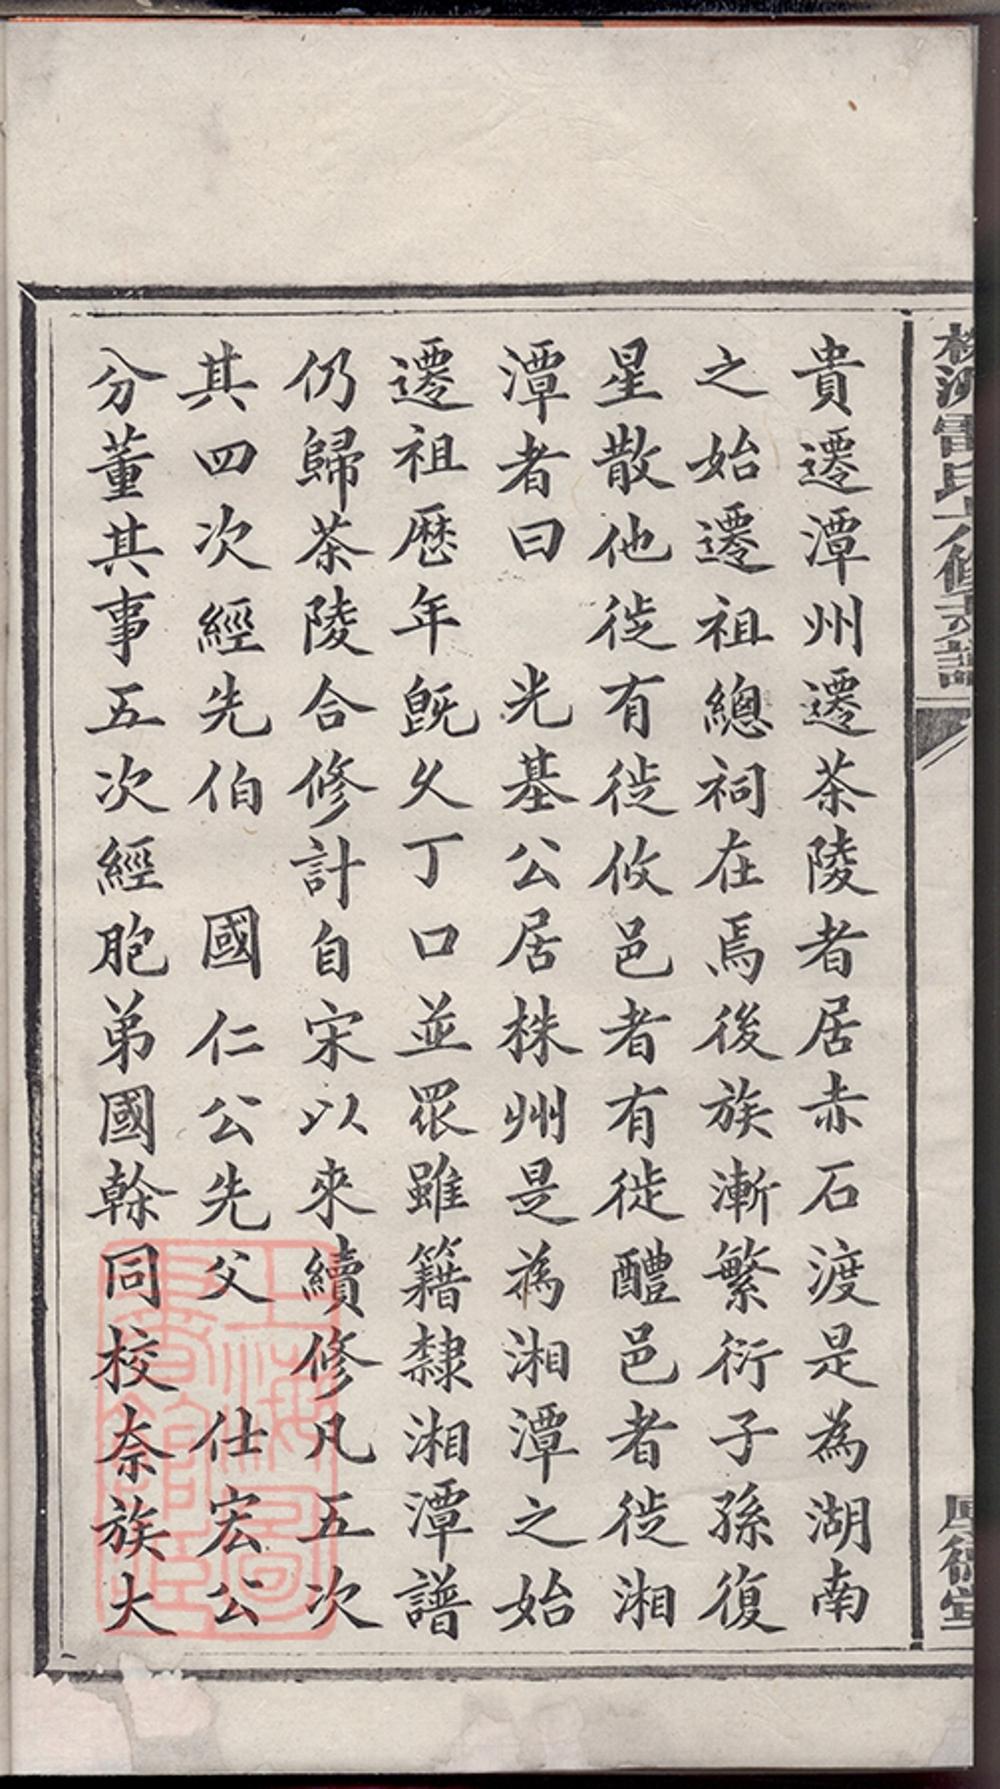 貴遷潭州遷茶陵者居赤石渡是為湖南
之始遷祖總祠在焉後族漸繁衍子孫復
星散他徙有徙攸邑者有徙醴邑者徙湘
潭者曰 光基公居株州是為湘潭之始
遷祖歷年既久丁口並眾雖籍隸湘潭譜
仍歸茶陵合修計自宋以來續修凡五次
其四次經先伯 國仁公先父 仕宏公
分董其事五次經胞弟國榦同校奈族大
雷氏六修支譜
厚德堂
上海圖書館藏